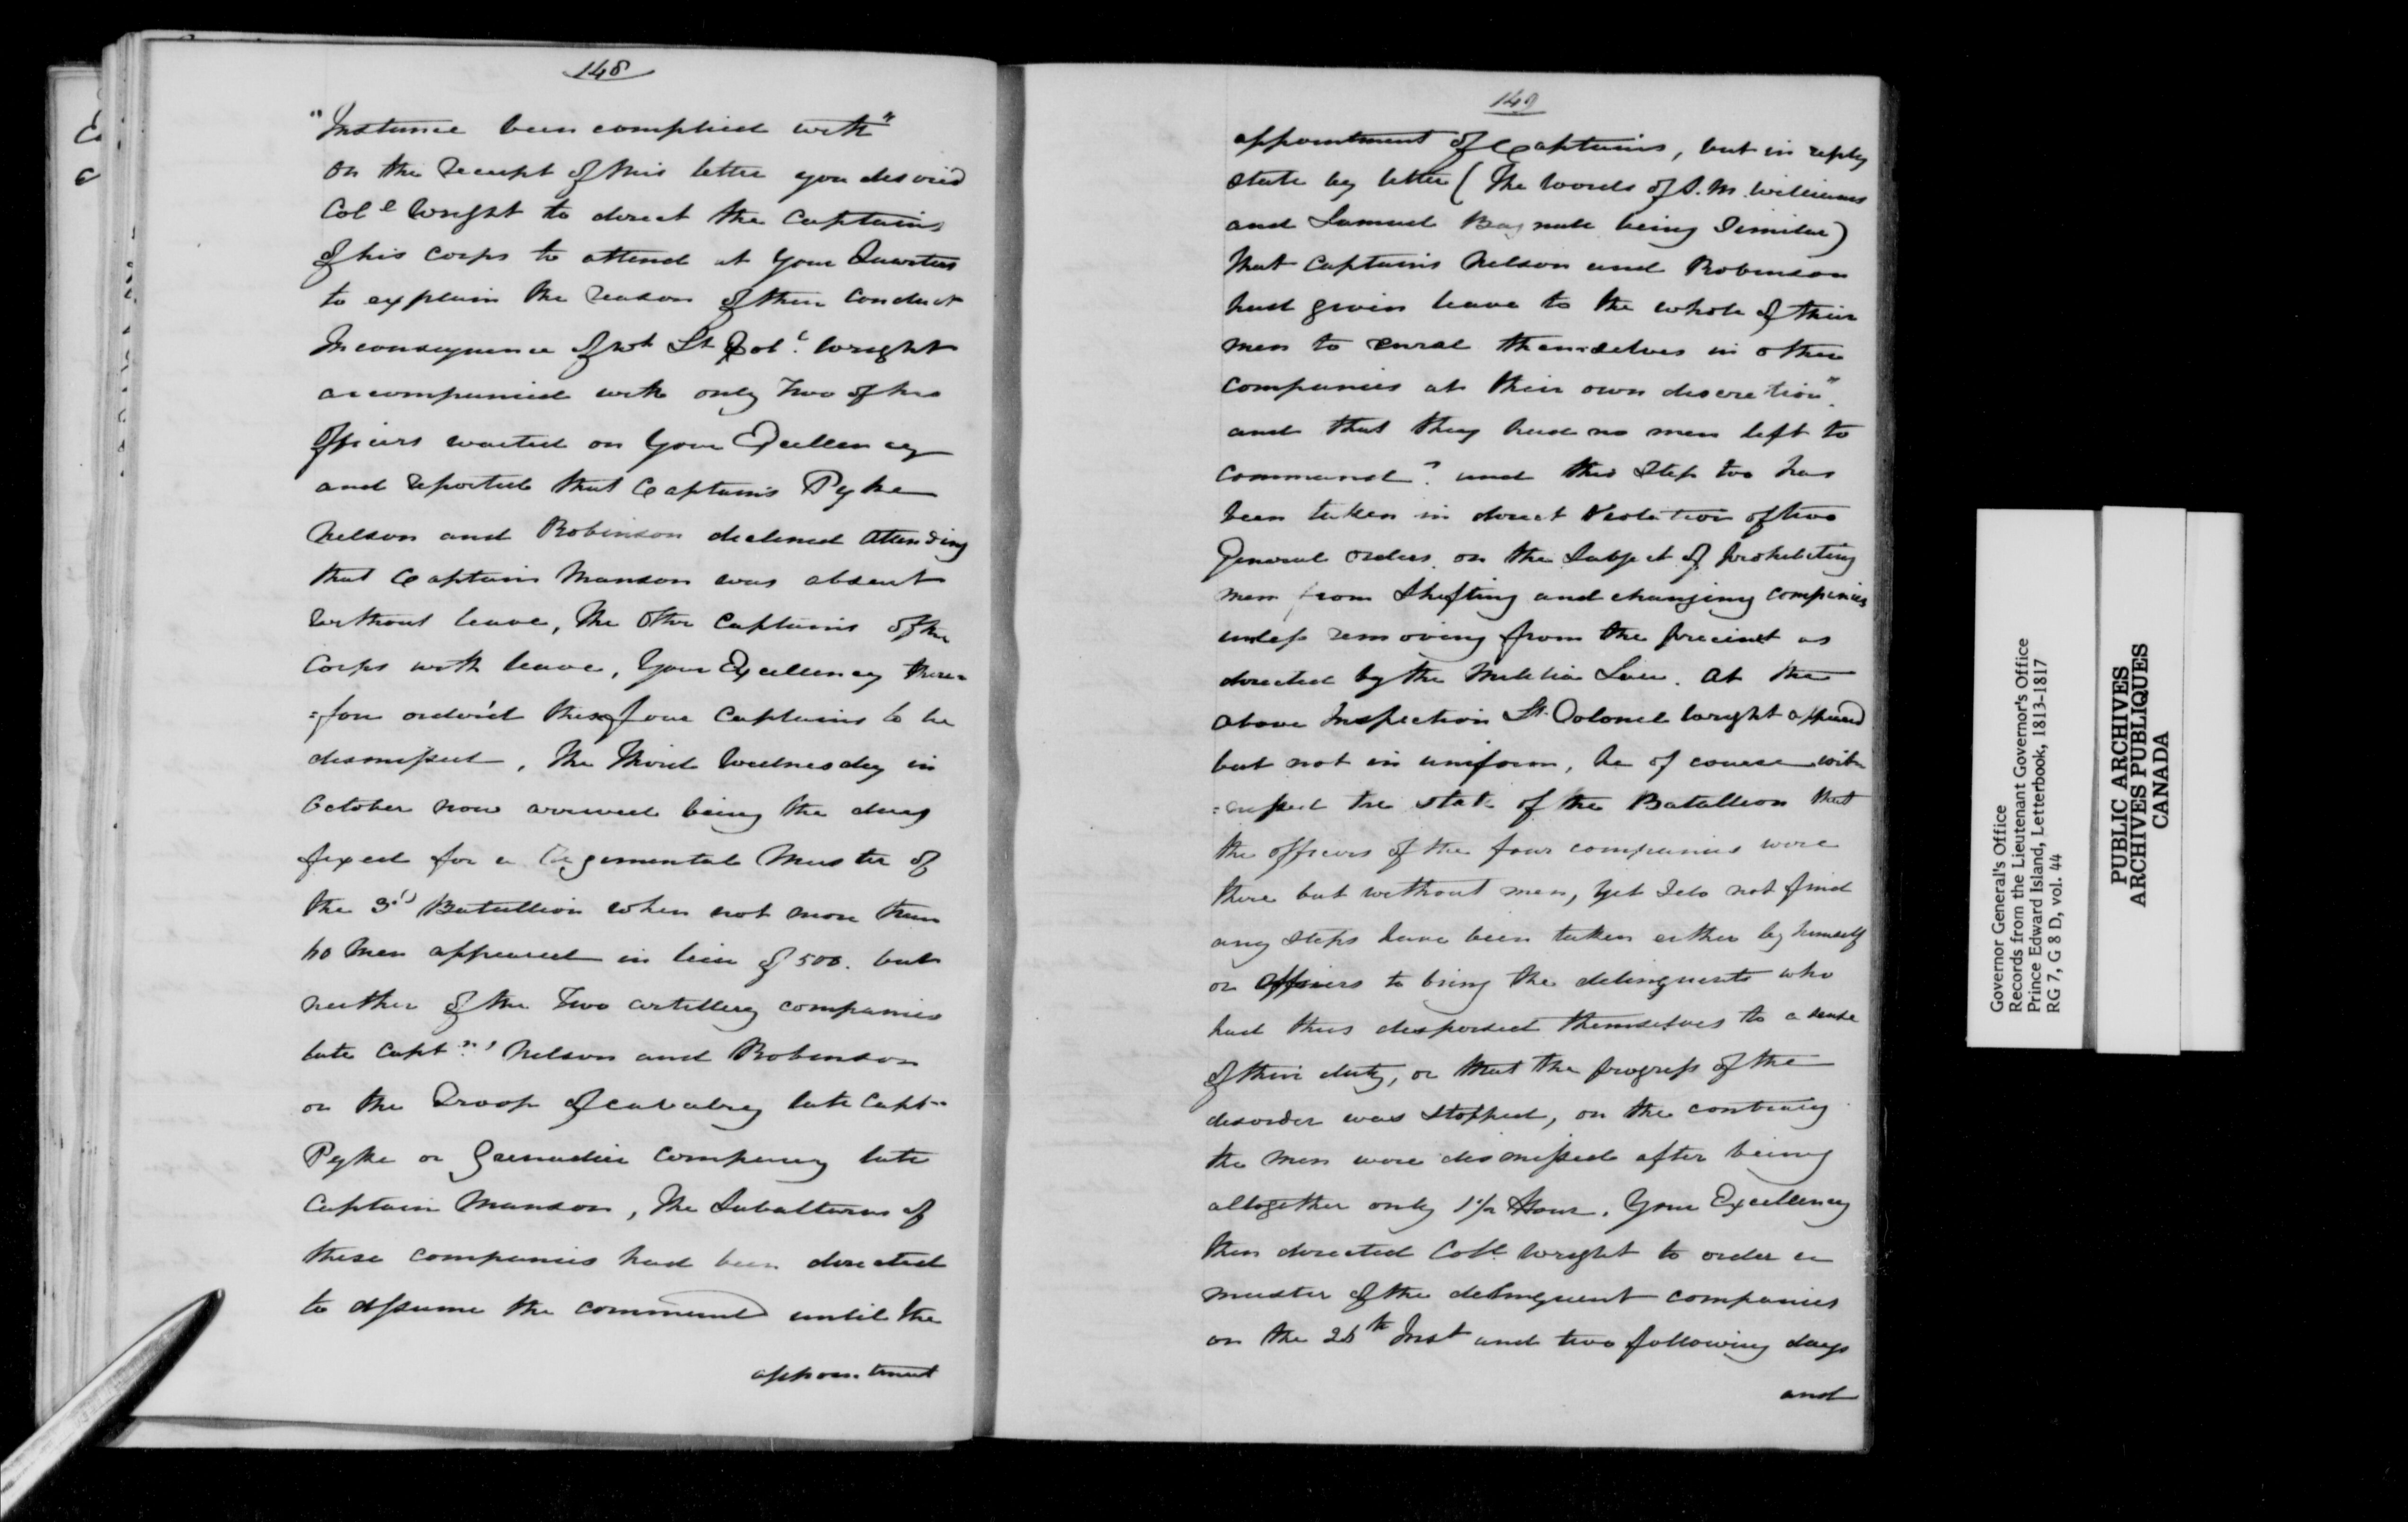 148
"Instance been complied with"
on the receipt of this letter you desired
Col.l Wright to direct the Captains
of his corps to attend at your Quarters
to explain the reason of their conduct
In consequence of wh Lt Col.l Wright
accompanied with only two of his
officers waited on Your Excellency
and reported that Captains Pyke
Nelson and Robinson declined attending
that Captain Manson was absent
without leave, the other Captains of the
Corps with leave, Your Excellency there=
=fore order'd these four Captains to be
dismissed, The Third Wednesday in
October now arrived being the day
fixed for a Regimental Muster of
the 3.d Batallion when not more than
60 Men appeared in lieu of 500. but
neither of the Two artillery companies
late Capt.ns Nelson and Robinson
or the Troop of cavalry late Capt.n
Pyke or Grenadier Company late
Captain Manson, The Subalterns of
these companies had been directed
to assume the command until the
appointment
149
appointment of Captains, but in reply
state by letter (The words of S. M. Williams
and Samuel Bagnall being Similar)
that Captains Nelson and Robinson
had given leave to the whole of their
men to enrol themselves in other
companies at their own discretion"
and that they had no men left to
command" and this Step too has
been taken in direct Violation of two
General orders on the Subject of prohibiting
men from Shifting and changing companies
unless removing from the precinct as
directed by the Militia Law. At the
above Inspection Lt. Colonel Wright appeared
but not in uniform, he of course wit-
=nessed the state of the Batallion that
the officers of the four companies were
there but without men, yet I do not find
any steps have been taken either by himself
or officers to bring the delinquents who
had thus dispersed themselves to a sense
of their duty, or that the progress of the
disorder was stopped, on the contrary
the men were dismissed after being
altogether only 1½ Hour. Your Excellency
then directed Coll. Wright to order a
muster of the delinquent companies
on the 26th Inst and two following days
and
Governor General's Office
Records from the Lieutenant Governor's Office
Prince Edward Island, Letterbook, 1813-1817
RG 7, G 8 D, vol. 44
PUBLIC ARCHIVES
ARCHIVES PUBLIQUES
CANADA